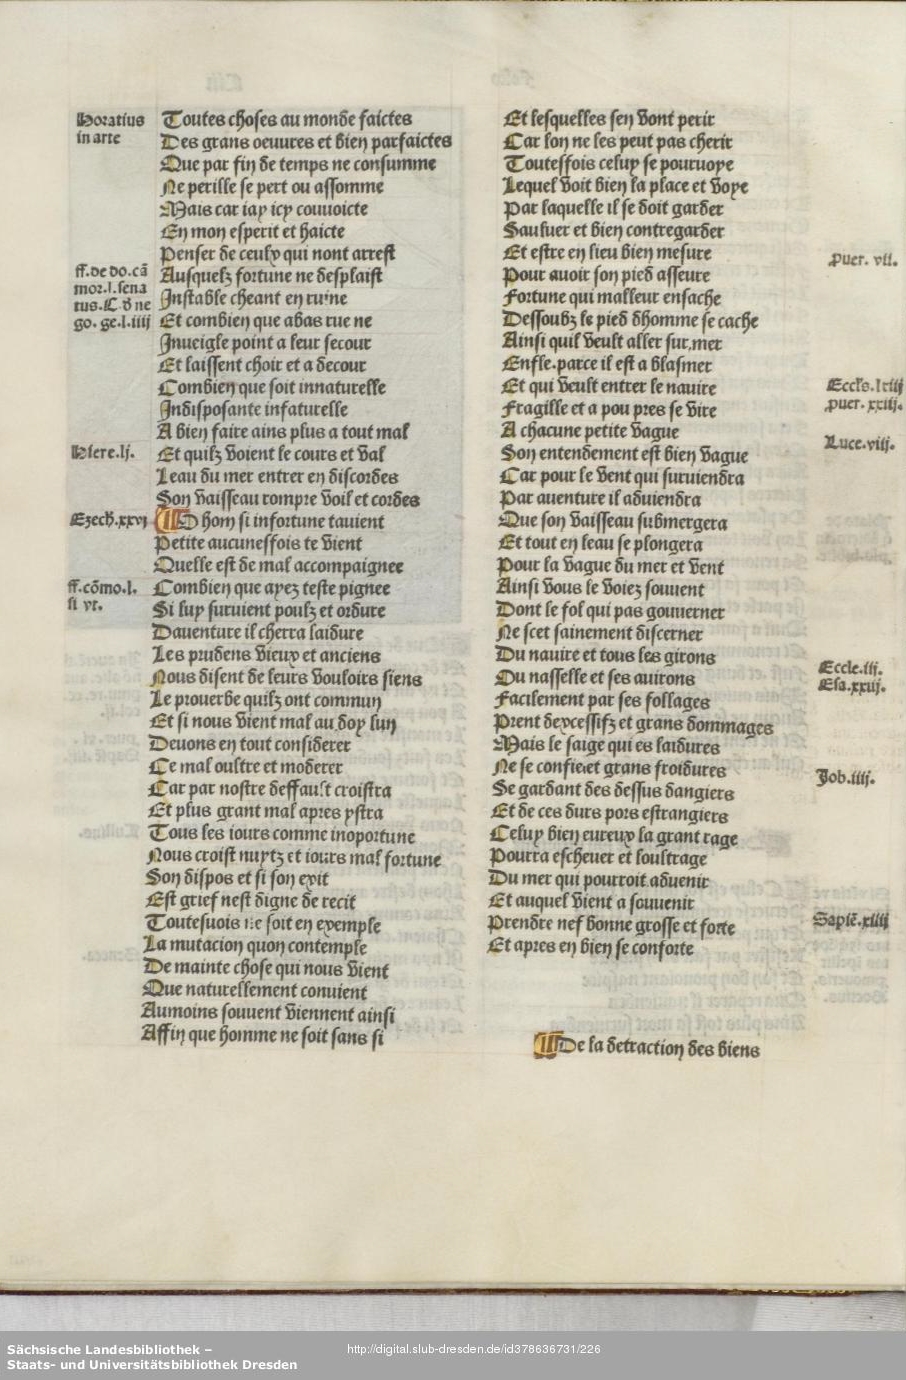 Horatius
in arte
Toutes choses au monde faictes
Des grans oeuures et bien parfaictes
Que par fin de temps ne consumme
Ne perille se pert ou assomme
Mais car iay icy couuoicte
En mon esperit et haicte
Penser de ceulx qui nont arrest
ff. de do. cã
mor. l. sena
tus. C. d ne
go. ge. l. iiij
Ausquelz fortune ne desplaist
Instable cheant en ruine
Et combien que abas rue ne
Inueigle point a leur secour
Et laissent choir et a decour
Combien que soit innaturelle
Indisposante infaturelle
A bien faire ains plus a tout mal
Hiere. lj.
Et quilz voient le cours et val
Leau du mer entrer en discordes
Son vaisseau rompre voil et cordes
Ezech. xxvj
O hom si infortune tauient
Petite aucuneffois te vient
Quelle est de mal accompaignee
ff. cõmo. l.
si vt.
Combien que ayez teste pignee
Si luy suruient poulz et ordure
Dauenture il cherra laidure
Les prudens vieux et anciens
Nous disent de leurs vouloirs siens
Le prouerbe quilz ont commun
Et si nous vient mal au doy lun
Deuons en tout considerer
Ce mal oultre et moderer
Car par nostre deffault croistra
Et plus grant mal apres ystra
Tous les iours comme inoportune
Nous croist nuytz et iours mal fortune
Son dispos et si son exit
Est grief nest digne de recit
Toutesuois ne soit en exemple
La mutacion quon contemple
De mainte chose qui nous vient
Que naturellement conuient
Aumoins souuent viennent ainsi
Affin que homme ne soit sans si
Et lesquelles sen vont perir
Car lon ne les peut pas cherir
Toutesfois celuy se pouruoye
Lequel voit bien la place et voye
Par laquelle il se doit garder
Sauluer et bien contregarder
Et estre en lieu bien mesure
Puer. vii.
Pour auoir son pied asseure
Fortune qui malleur ensache
Dessoubz le pied dhomme se cache
Ainsi quil veult aller sur mer
Enfle. parce il est a blasmer
Eccls. lxiij
puer. xxiij.
Et qui veult entrer le nauire
Fragille et a pou pres se vire
A chacune petite vague
Luce. viij.
Son entendement est bien vague
Car pour le vent qui suruiendra
Par auenture il aduiendra
Que son vaisseau submergera
Et tout en leau se plongera
Pour la vague du mer et vent
Ainsi vous le voiez souuent
Dont le fol qui pas gouuerner
Ne scet sainement discerner
Du nauire et tous les girons
Eccle. iij.
Esa. xxij.
Ou nasselle et ses auirons
Facilement par ses follages
Prent dexcessifz et grans dommages
Mais le saige qui es laidures
Ne se confie et grans froidures
Job. iiij.
Se gardant des dessus dangiers
Et de ces durs pors estrangiers
Celuy bien eureux la grant rage
Pourra escheuer et loultrage
Du mer qui pourroit aduenir
Et auquel vient a souuenir
Sapiẽ. xiiij
Prendre nef bonne grosse et forte
Et apres en bien se conforte
De la detraction des biens
Sächsische Landesbibliothek –
Staats- und Universitätsbibliothek Dresden
http://digital.slub-dresden.de/id378636731/226